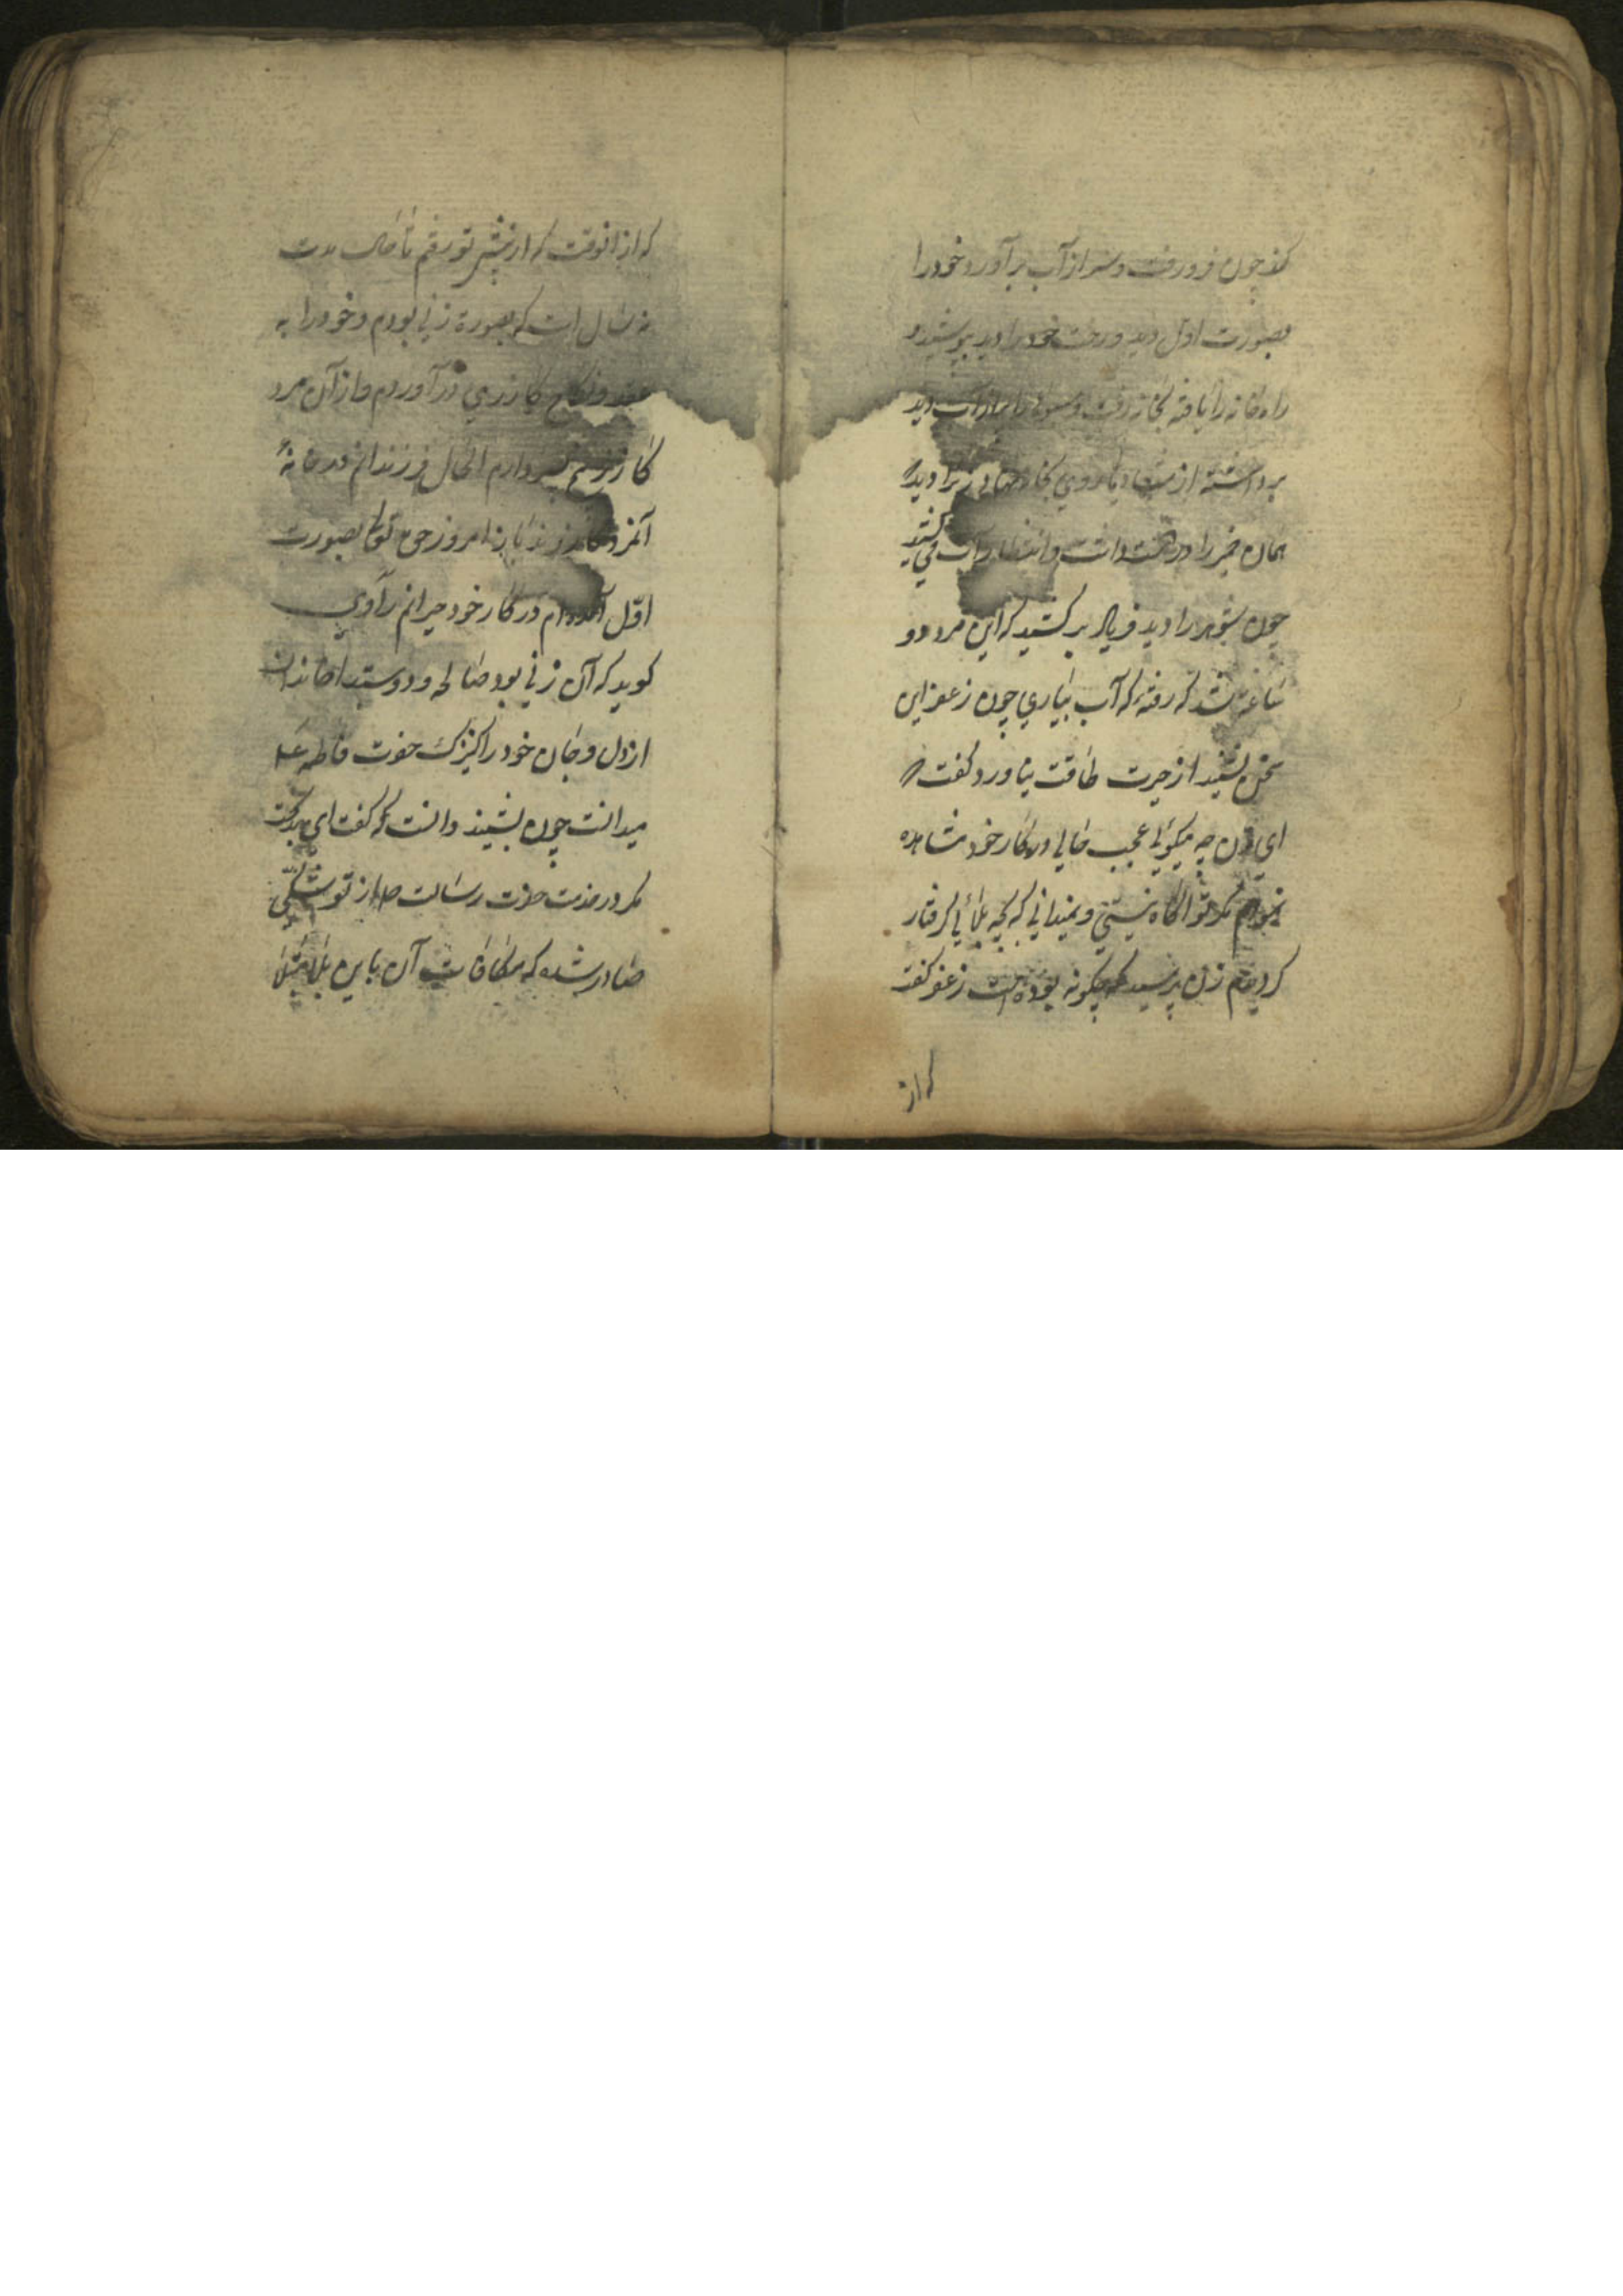 کند چون فرو رفت و سر از آب برآورد خود را
بصورت اول دید و رخت خود را دید پوشید و
راه خانه را یافته بخانه رفت و سبو را پر از آب دید
برداشته از
همان خمیر را در دست داشت و انتظار آب می کشید
چون شوهر را دید فریاد بر کشید که این مرد دو
ساعة شد که رفتهٔ که آب بیاری چون زعفر این
سخن بشنید از حیرت طاقت نیاورد گفت
ای زن چه میگوئی عجب حالی در کار خود مشاهده
نمودم مگر تو آگاه نیستی و نمیدانی که بچه بلائی گرفتار
گردیدم زن پرسید که چگونه بوده است زعفر گفت
که از
که از انوقت که از پیش تو رفتم تا حال مدت
نه سال است که بصورة زنی بودم و خود را به
عقد و نکاح کازری درآوردم و از آن مرد
کازر پسر دارم الحال فرزندانم در خانهٔ
آنمرد کازرند تا امروز حق تعا بصورت
اوّل آمده ام در کار خود حیرانم راوی
کوید که آن زنی بود صالحه و دوستدار خاندان
از دل و جان خود را کنیزک حضرت فاطمه ع
میدانست چون بشنید دانست که گفت ای بدبخت
مکر در خدمت حضرت رسالت ص از تو شکّی
صادر شده که مکافات آن باین بلا مبتلا